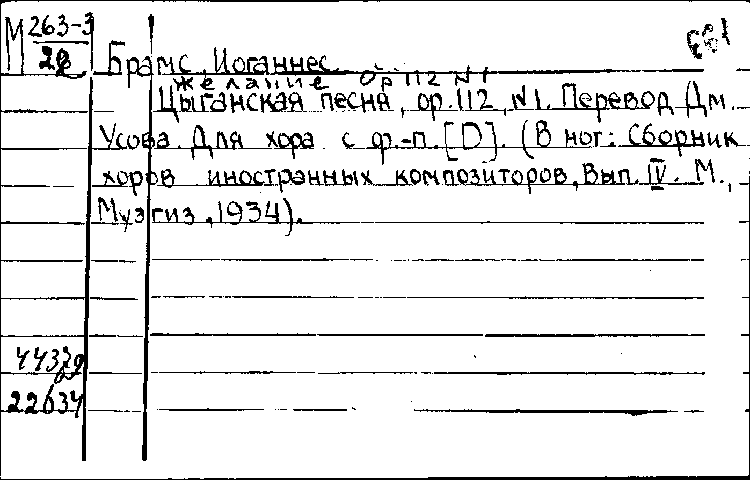 М 263-3
28
Брамс, Иоганнес.
Желание Op 112 N1
Цыганская песня, op.112, N1. Перевод Дм.
Усова. Для хора с ф.-п. [D]. (В ног: Сборник
хоров иностранных композиторов, Вып. IV. М.,
Музгиз, 1934).
22634